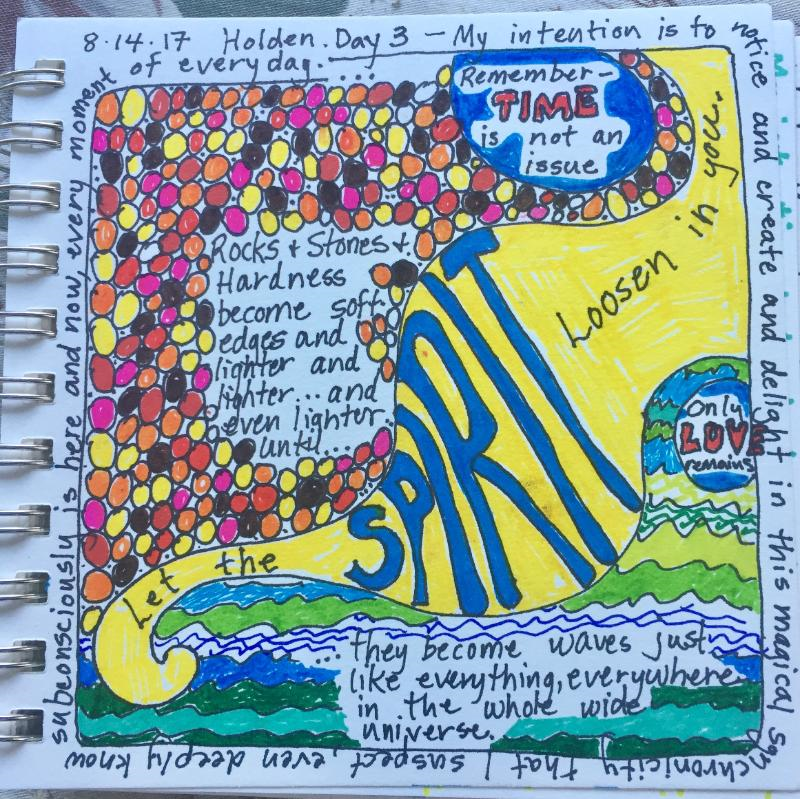 8.14.17 Holden. Day 3 – My intention is to notice and create and delight in this magical synchronicity that I suspect, even deeply know subconsciously is here and now, every moment
of everyday. . . .
Remember–
TIME
is not an
issue
Rocks + Stones +
Hardness
become soft
edges and
lighter and
lighter... and
even lighter
until...
Let the
SPIRIT
Loosen in you.
Only
LOVE
remains
... they become waves just
like everything, everywhere
in the whole wide
universe.